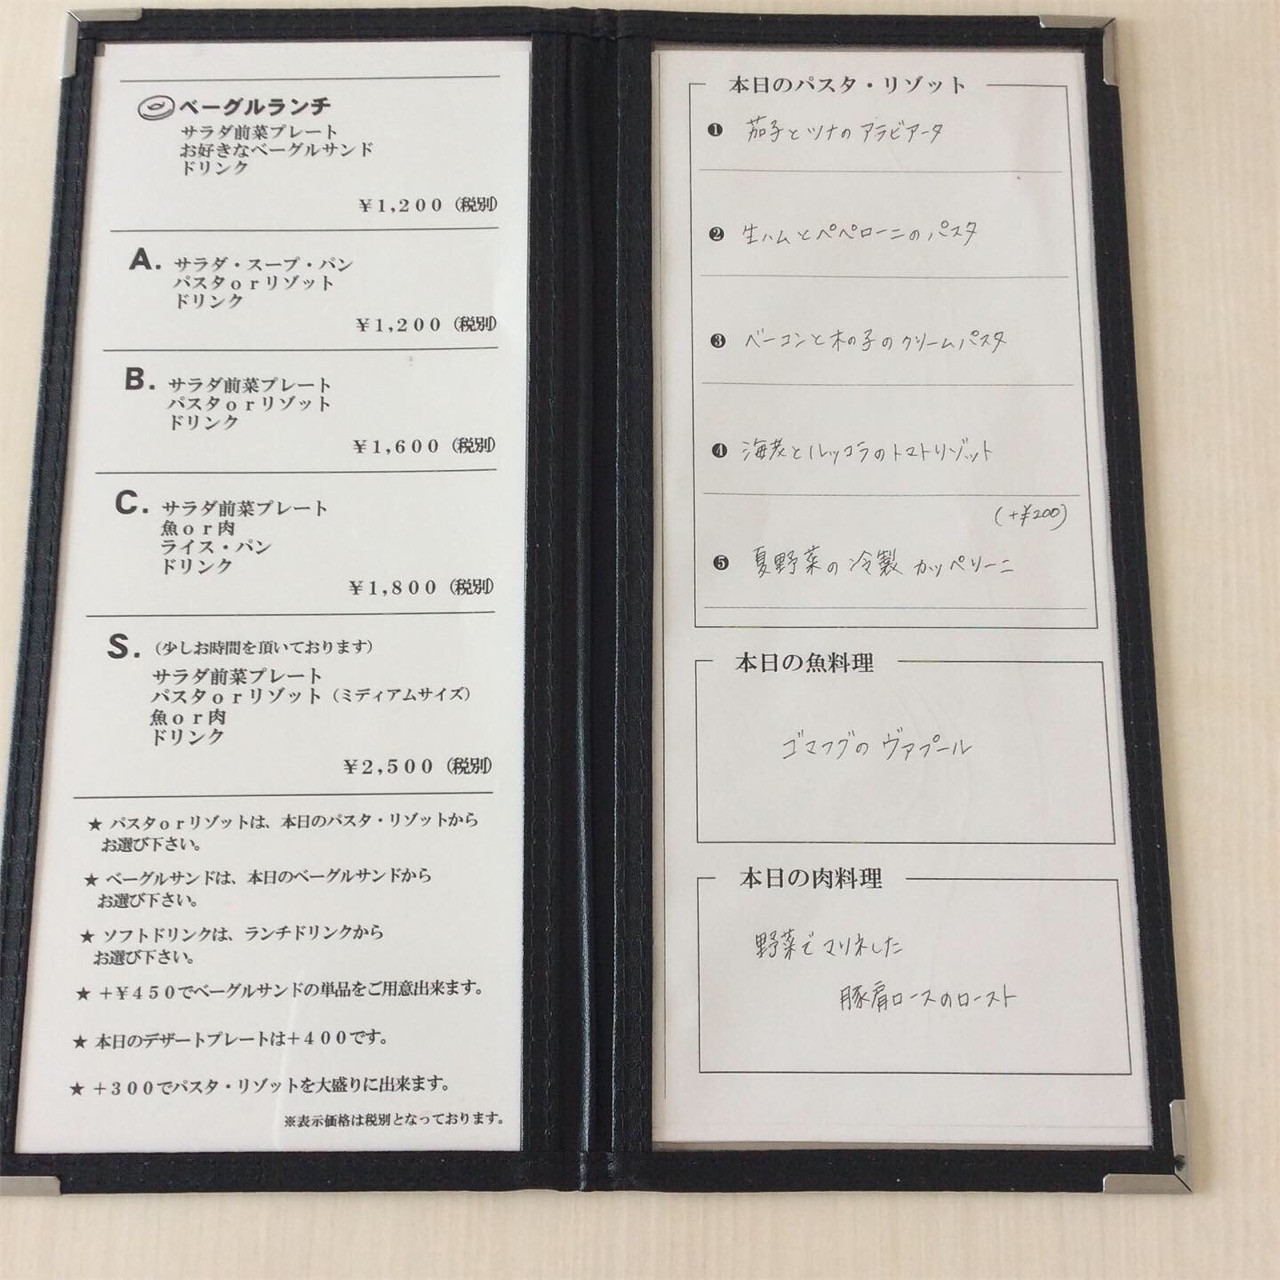 ベーグルランチ
サラダ前菜プレート
お好きなベーグルサンド
ドリンク
¥1,200 (税別)
A. サラダ・スープ・パン
パスタorリゾット
ドリンク
¥1,200 (税別)
B. サラダ前菜プレート
パスタorリゾット
ドリンク
¥1,600 (税別)
C. サラダ前菜プレート
魚or肉
ライス・パン
ドリンク
¥1,800 (税別)
S. (少しお時間を頂いております)
サラダ前菜プレート
パスタorリゾット (ミディアムサイズ)
魚or肉
ドリンク
¥2,500 (税別)
★ パスタorリゾットは、本日のパスタ・リゾットから
お選び下さい。
★ ベーグルサンドは、本日のベーグルサンドから
お選び下さい。
★ ソフトドリンクは、ランチドリンクから
お選び下さい。
★ +¥450でベーグルサンドの単品をご用意出来ます。
★ 本日のデザートプレートは+400です。
★ +300でパスタ・リゾットを大盛りに出来ます。
※表示価格は税別となっております。
本日のパスタ・リゾット
❶ 茄子とツナのアラビアータ
❷ 生ハムとペペローニのパスタ
❸ ベーコンと木の子のクリームパスタ
❹ 海老とルッコラのトマトリゾット
(+¥200)
❺ 夏野菜の冷製カッペリーニ
本日の魚料理
ゴマフグのヴァプール
本日の肉料理
野菜でマリネした
豚肩ロースのロースト